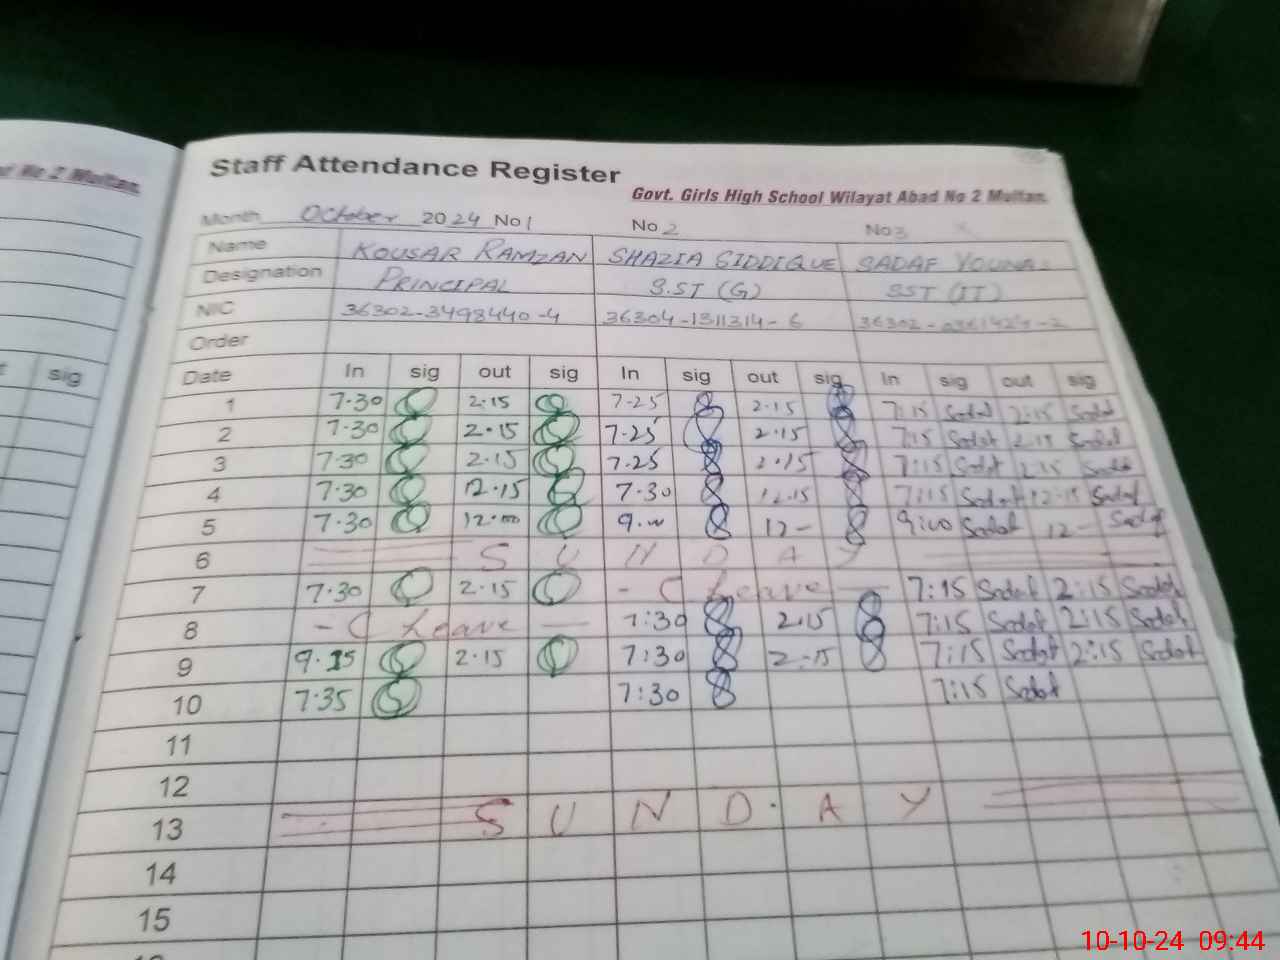 Staff Attendance Register
Govt. Girls High School Wilayat Abad No 2 Multan.
Month October 2024 No 1 No 2 No 3
Name KOUSAR RAMZAN SHAZIA SIDDIQUE SADAF YOUNAS
Designation PRINCIPAL S.ST (G) SST (IT)
NIC 36302-3498440-4 36304-1311314-6
Order
Date In sig out sig In sig out sig In sig out sig
1 7.30 2.15 7.25 2.15 7:15 Sadaf 2:15 Sadaf
2 7.30 2.15 7.25 2.15 7:15 Sadaf 2:15 Sadaf
3 7.30 2.15 7.25 2.15 7:15 Sadaf 2:15 Sadaf
4 7.30 12.15 7.30 12.15 7:15 Sadaf 12.15 Sadaf
5 7.30 12.00 9.00 12- 9:00 Sadaf 12- Sadaf
6 S U N D A Y
7 7.30 2.15 - C Leave - 7:15 Sadaf 2:15 Sadaf
8 - C Leave - 7:30 2.15 7:15 Sadaf 2:15 Sadaf
9 9.15 2.15 7:30 2.15 7:15 Sadaf 2:15 Sadaf
10 7.35 7:30 7:15 Sadaf
11
12
13 S U N D A Y
14
15
sig
10-10-24 09:44